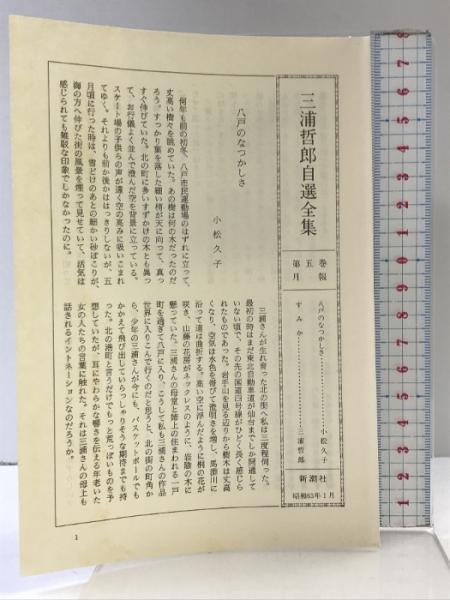 三浦哲郎自選全集
第五巻
月報
八戸のなつかしさ…………小松久子
すみか…………三浦哲郎
新潮社
昭和63年1月
八戸のなつかしさ
小松久子
何年も前の初冬、八戸市民運動場のはずれに立って
丈高い樹々を眺めていた。あの樹は何の木だったのだ
ろう。すっかり葉を落した細い梢が天に向って、真っ
すぐ伸びていた。北の町に多いすずかけの木とも異っ
て、お行儀よく並んで澄んだ空を背景に立っている。
スケート場の子供らの声が遠く空の高みに吸いこまれ
てゆく。それよりも前か後かははっきりしないが、五
月頃に行った時は、雪どけのあとの細かい砂ぼこりが、
海の方へ伸びた街の風景を煙って見せていて、活気は
感じられても雑駁な印象でしかなかったのに。
三浦さんが生れ育った北の街へ私は三度程伺った。
最初の時はまだ東北自動車道が仙台までしか開通して
いない頃で、その先の国道四号線がひどく長く感じら
れたものであった。岩手山を見る辺りから樹木は丈高
くなり、空気は水色を帯びて透明さを増し、馬淵川に
沿って道は曲折する。高い空に浮んだように桐の花が
咲き、山藤の花房がネックレスのように、岩陰の木に
懸っていた。三浦さんの母堂と姉上の住まわれる一戸
町を過ぎて八戸に入り、こうして私も三浦さんの作品
世界に入りこんで行くのだと思うと、北の街の町角か
ら、少年の三浦さんが今にも、バスケットボールでも
かかえて飛び出していらっしゃりそうな期待までも持
った。北の港町と言うだけでもっと荒っぽいものを予
想していたが、耳にやわらかな響きを伝える年老いた
女の人たちの言葉に触れた。それは三浦さんの母上も
話されるイントネーションなのだろうか。
1